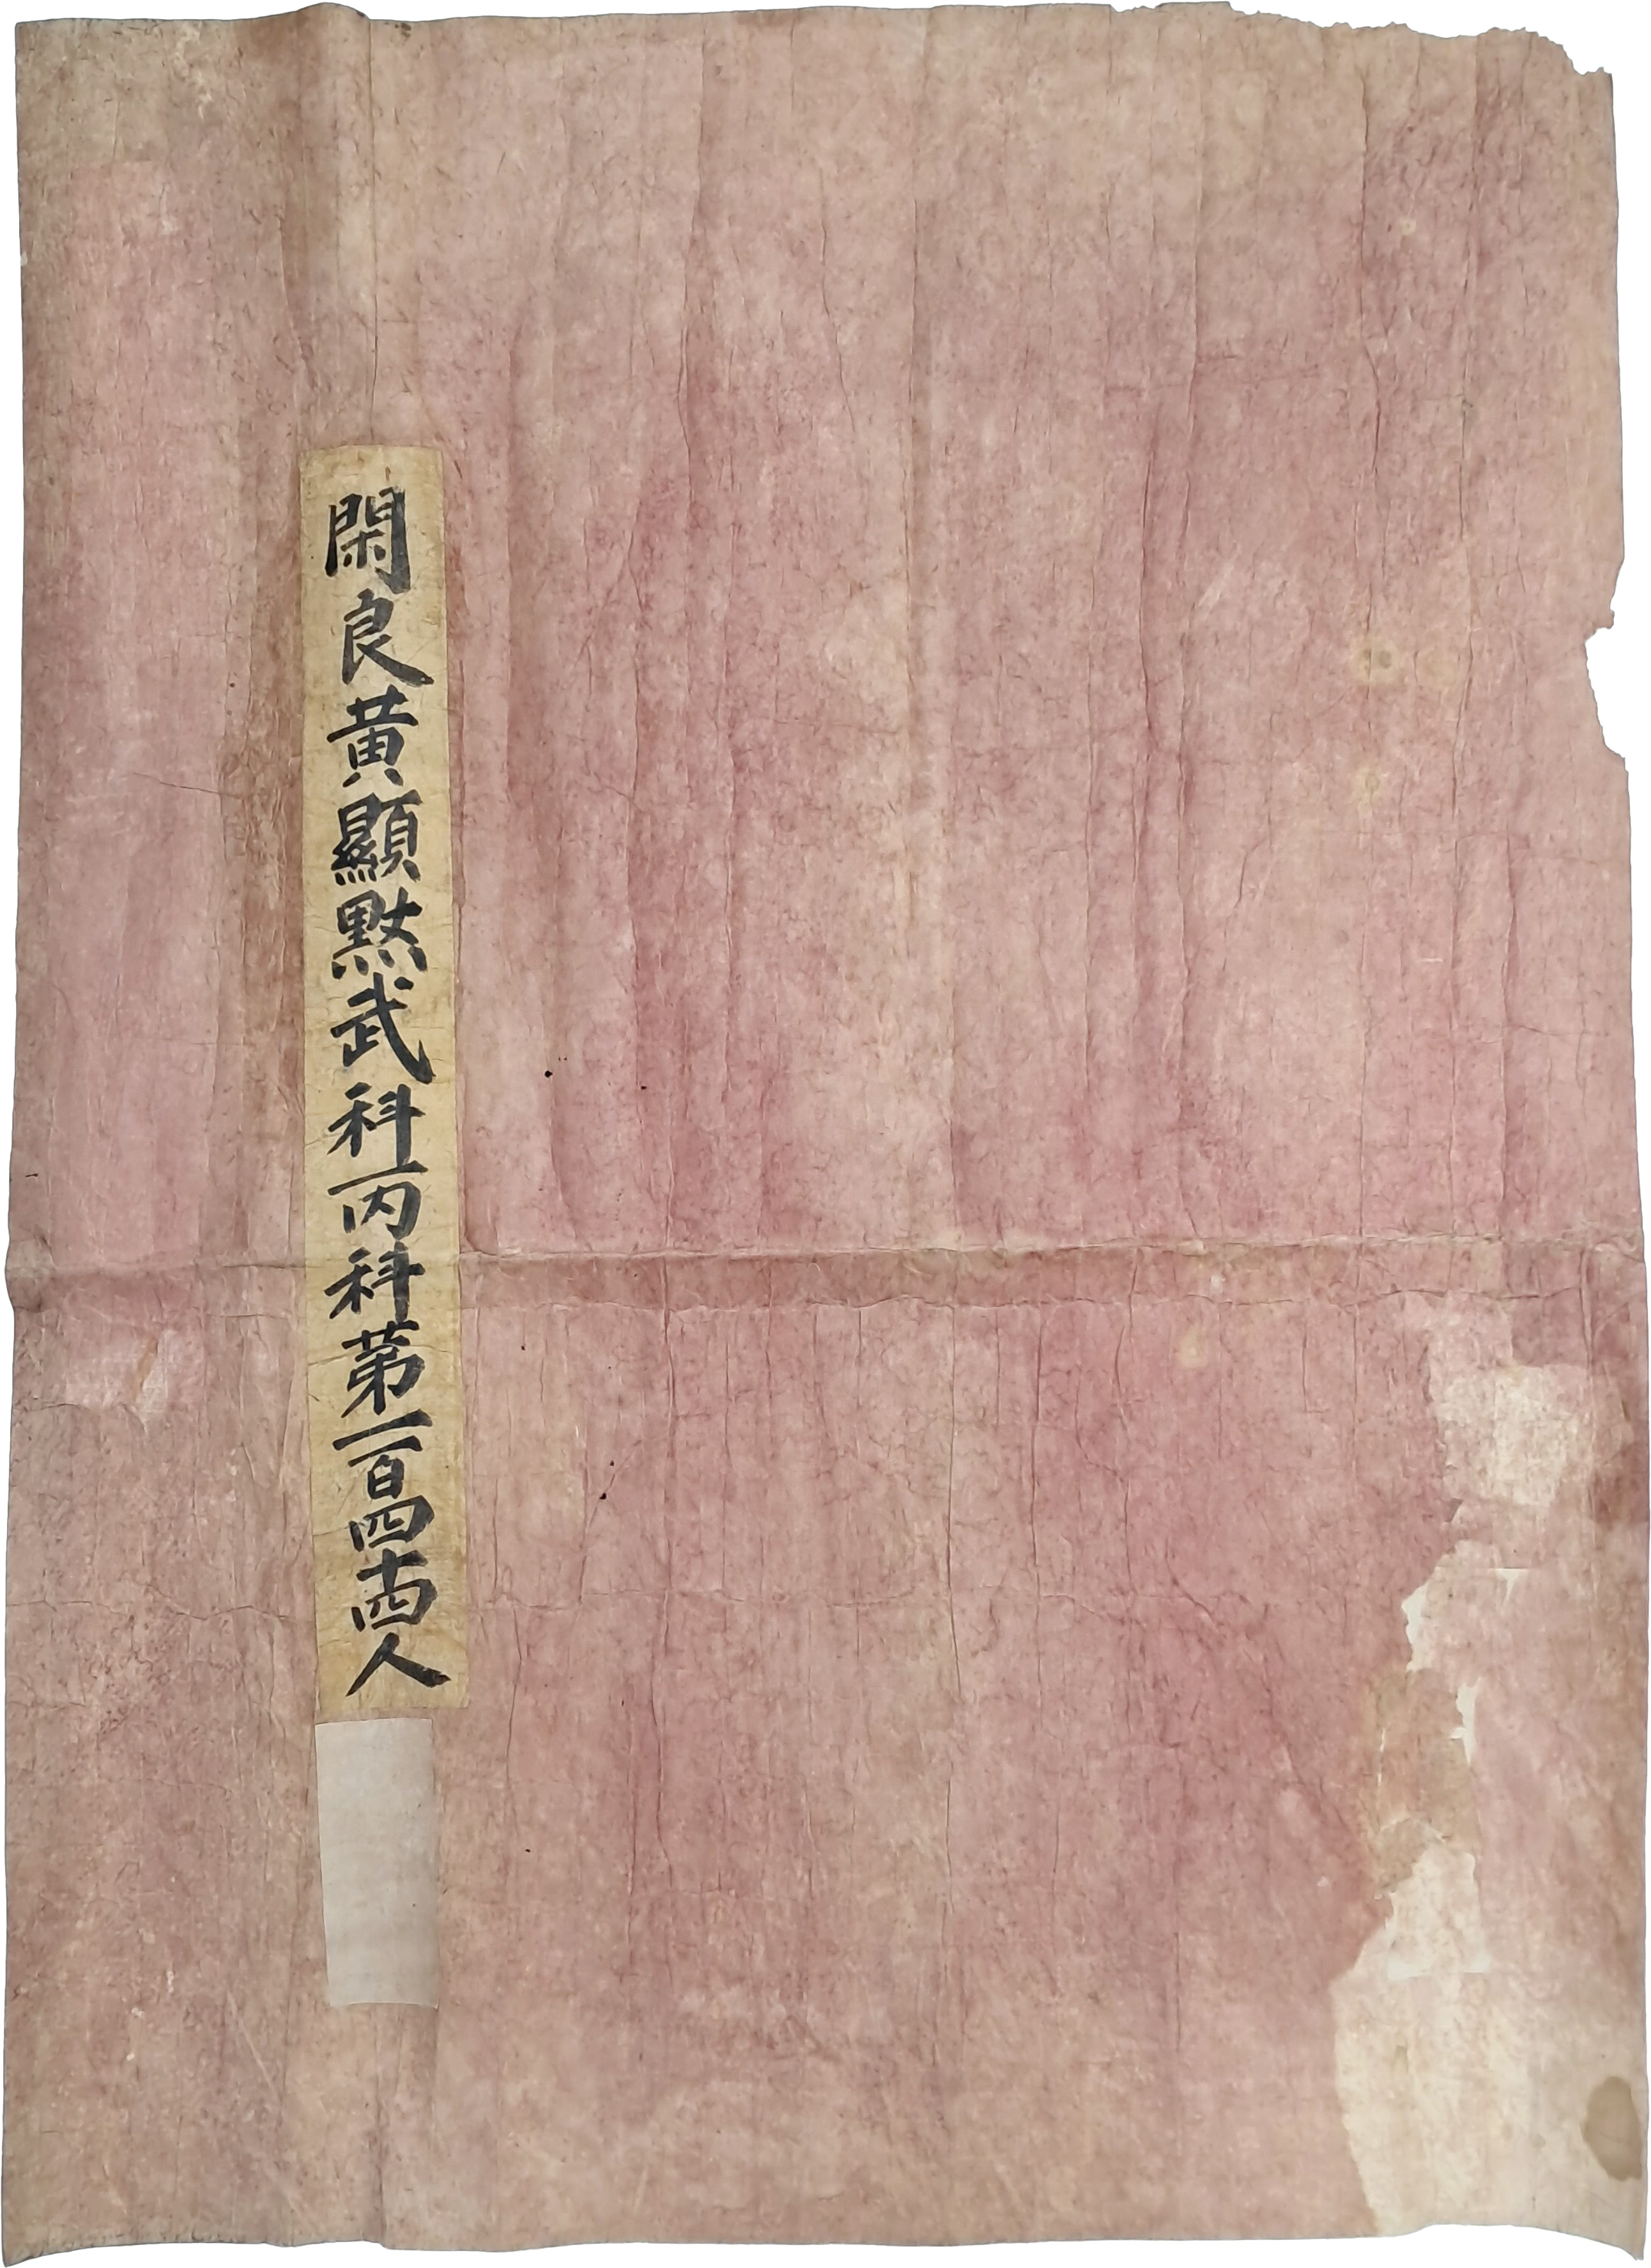 閑良黃顯黙武科丙科苐一百四十四人